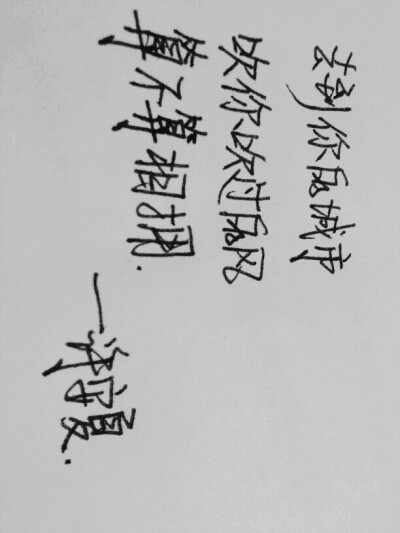 去到你的城市
吹你吹过的风
算不算相拥.
—守夏.